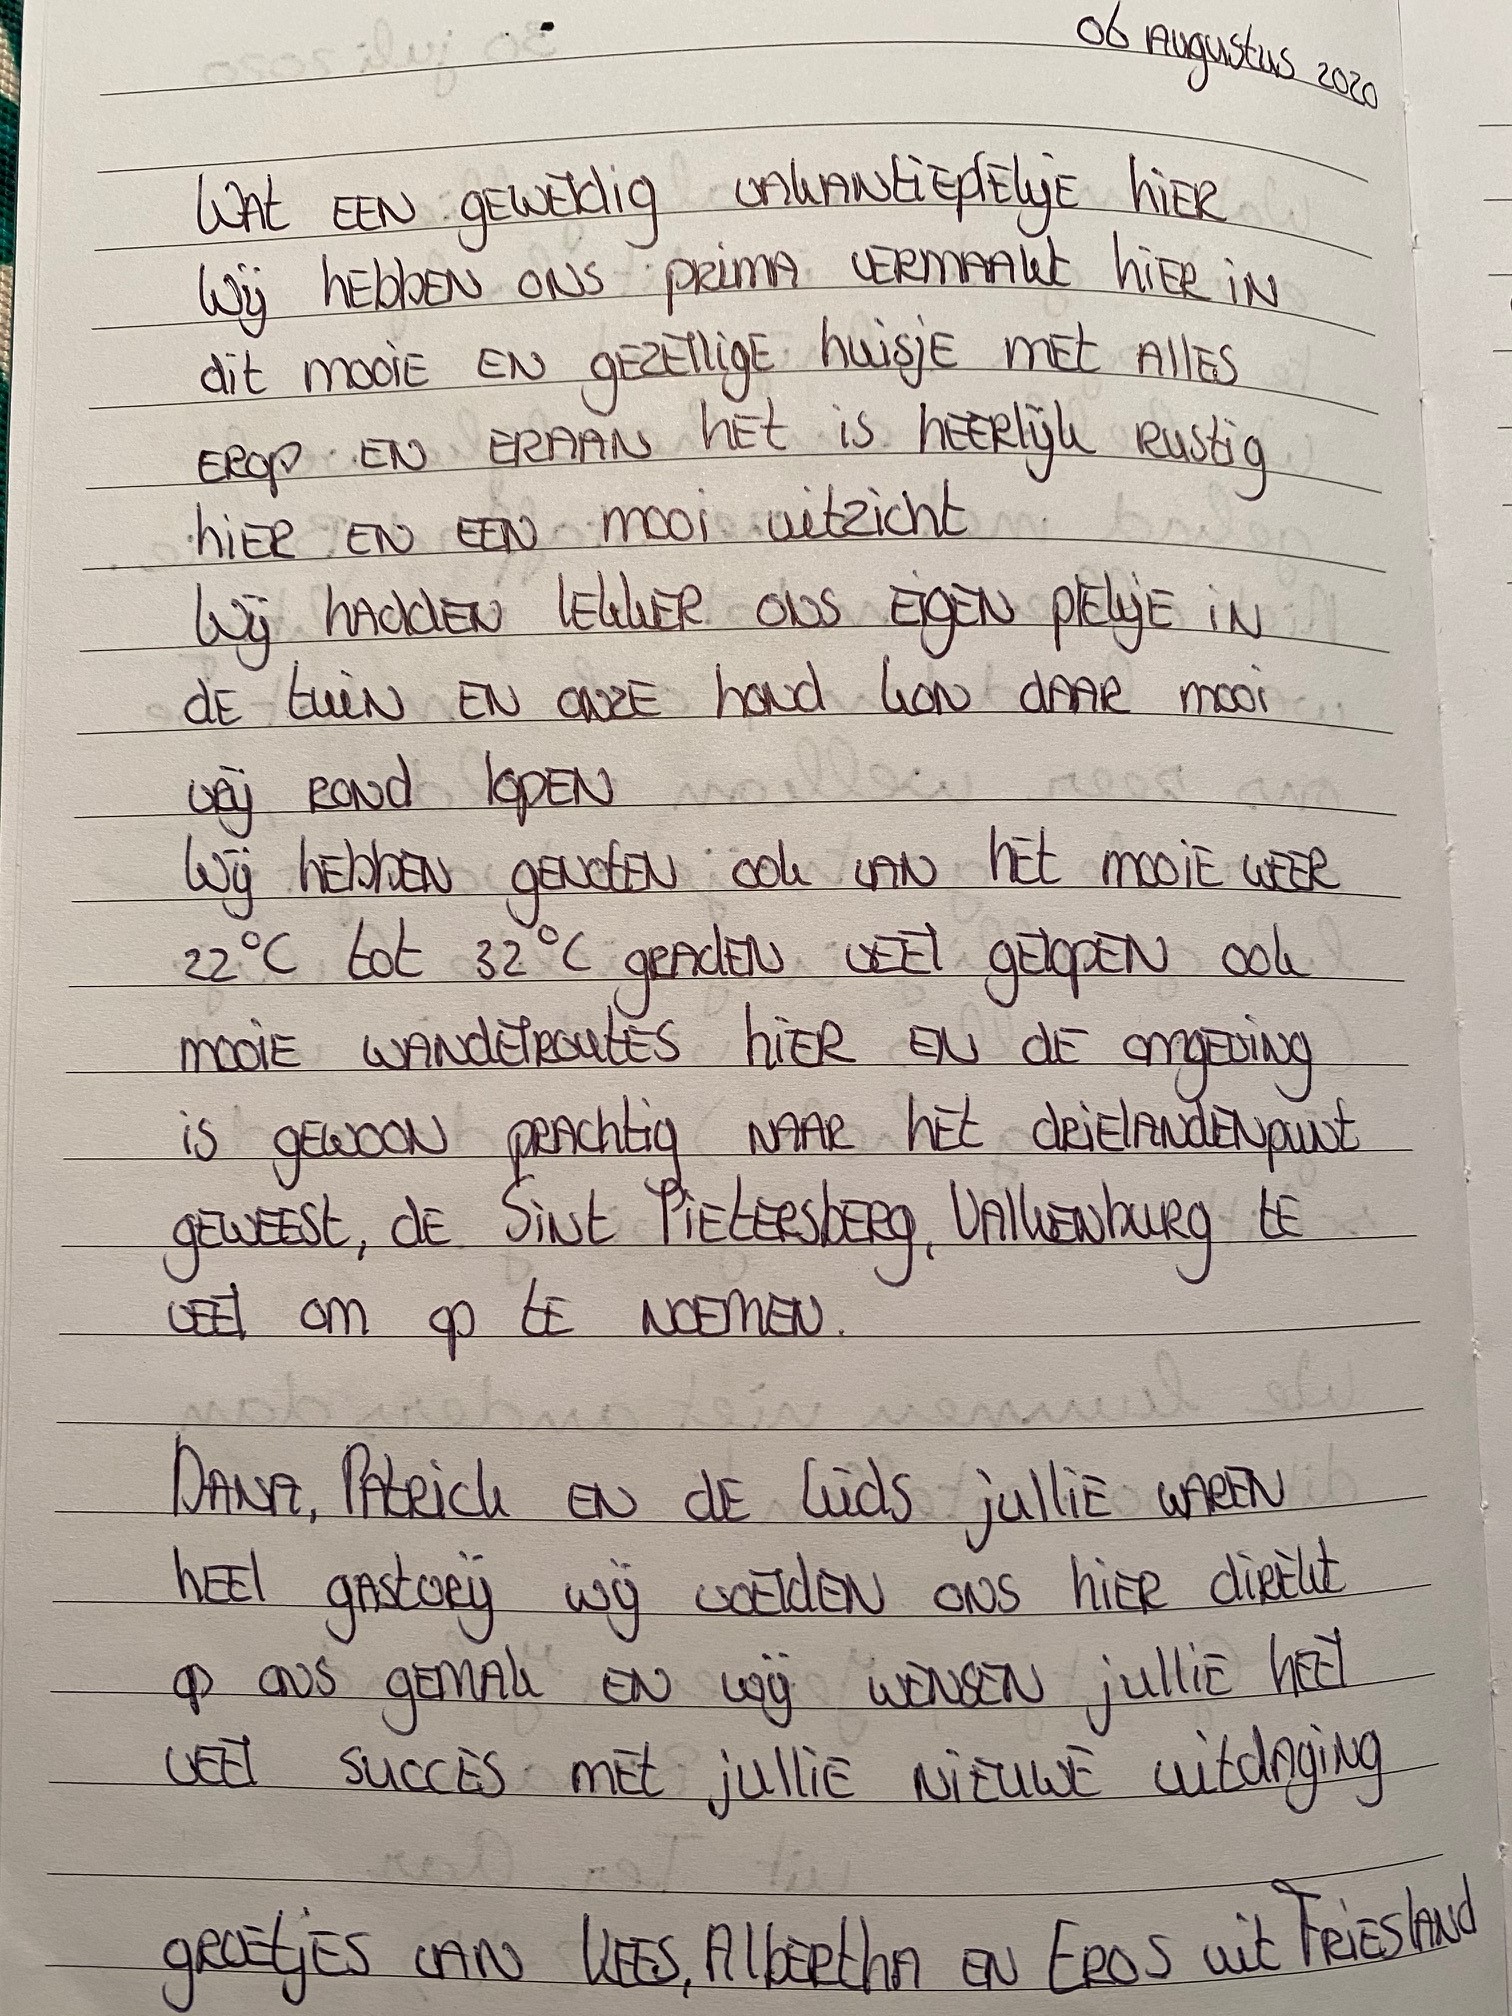 06 Augustus 2020
Wat een geweldig vakantieplekje hier
Wij hebben ons prima vermaakt hier in
dit mooie en gezellige huisje met alles
erop en eraan het is heerlijk rustig
hier en een mooi uitzicht
Wij hadden lekker ons eigen plekje in
de tuin en onze hond kon daar mooi
vrij rond lopen
Wij hebben genoten ook van het mooie weer
22°C tot 32°C graden veel gelopen ook
mooie wandelroutes hier en de omgeving
is gewoon prachtig naar het drielandenpunt
geweest, de Sint Pietersberg, Valkenburg te
veel om op te noemen.
Dana, Patrick en de kids jullie waren
heel gastvrij wij voelden ons hier direkt
op ons gemak en wij wensen jullie heel
veel succes met jullie nieuwe uitdaging
groetjes van Kees, Albertha en Eros uit Friesland